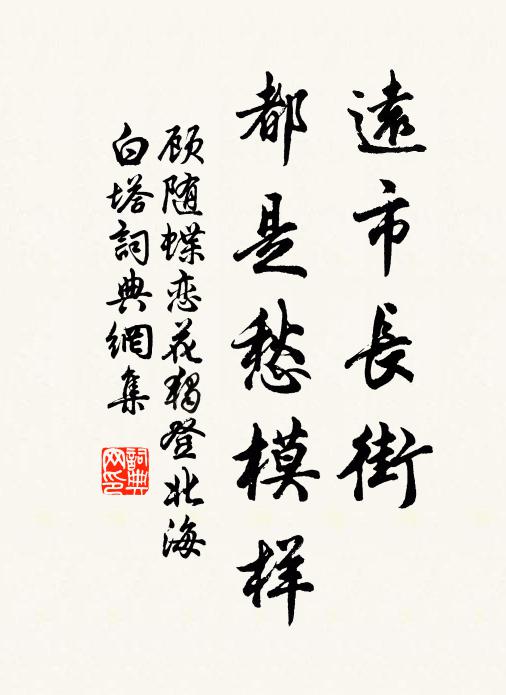 遠市長街
都是愁模样
顾随蝶恋花獨登北海
白塔詞典網集
詞典网印